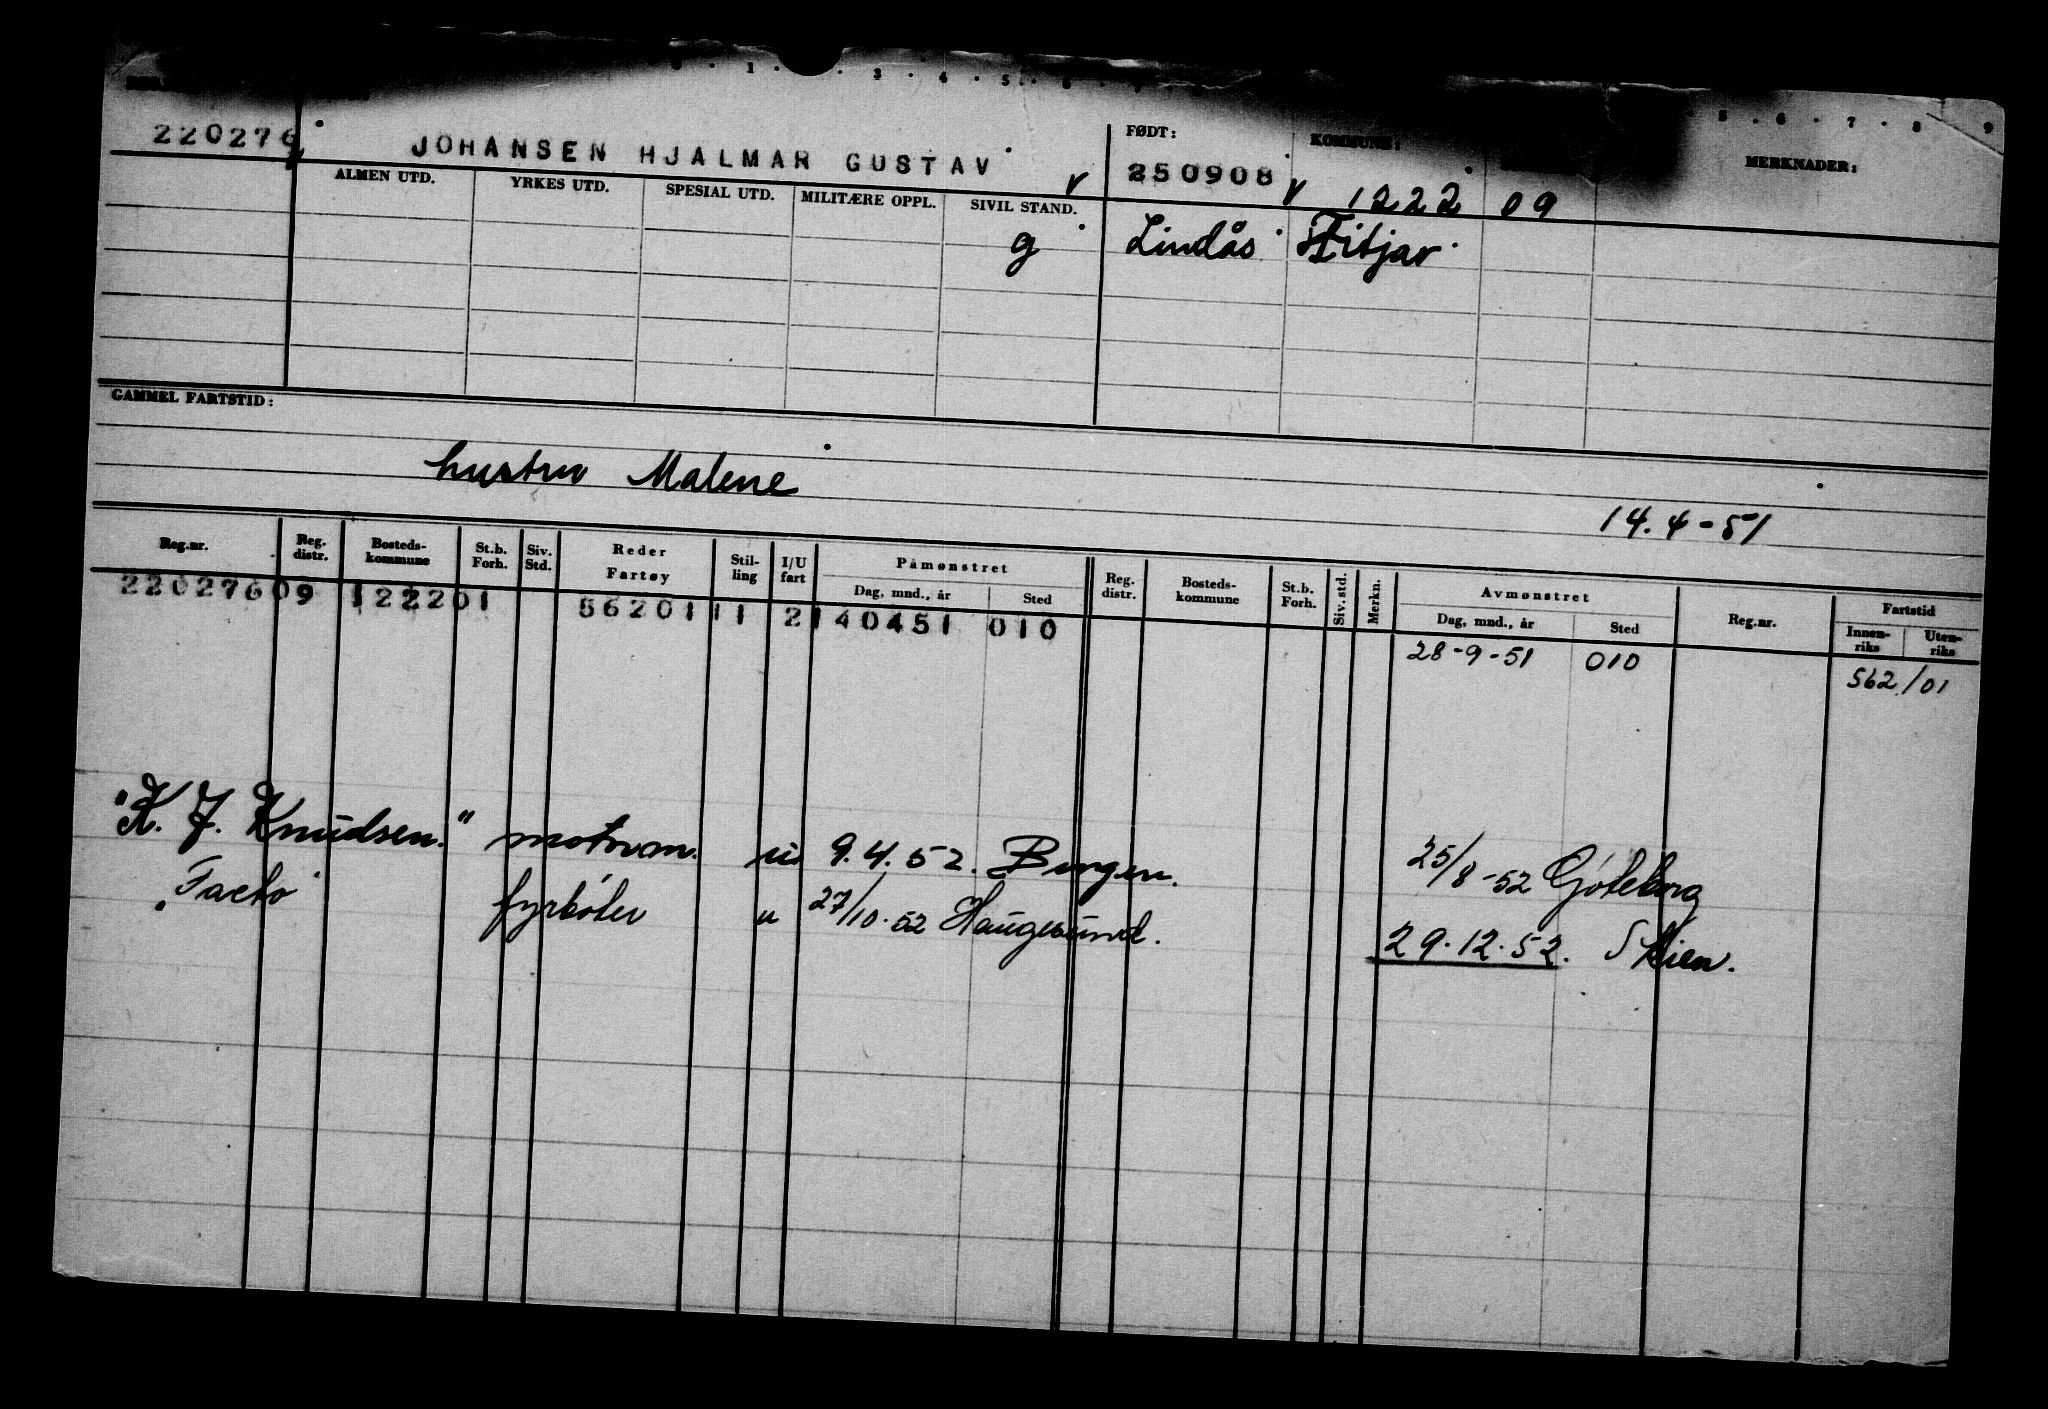 0 · 1 · · 3 · 4 · 5 · 6 · 7 5 · 6 · 7 · 8 · 9
FØDT: KOMMUNE: MERKNADER:
220276 JOHANSEN HJALMAR GUSTAV 250908 1222 09
ALMEN UTD. YRKES UTD. SPESIAL UTD. MILITÆRE OPPL. SIVIL STAND.
g Lindås Fitjar
GAMMEL FARTSTID:
hustru Malene
14.4-51
Reg.nr. Reg. distr. Bosteds- kommune St.b. Forh. Siv. Std. Reder Fartøy Stil- ling I/U fart Påmønstret Dag, mnd., år Sted Reg. distr. Bosteds- kommune St.b. Forh. Siv. std. Merkn. Avmønstret Dag, mnd., år Sted Reg.nr. Fartstid Innen- riks Uten- riks
220276 09 1222 01 56201 11 2 140451 010
28-9-51 010 562/01
"K. J. Knudsen." motorm. u 9.4.52. Bergen. 25/8-52 Göteborg
"Facto" fyrbøter u 27/10.52 Haugesund. 29.12.52. Skien.